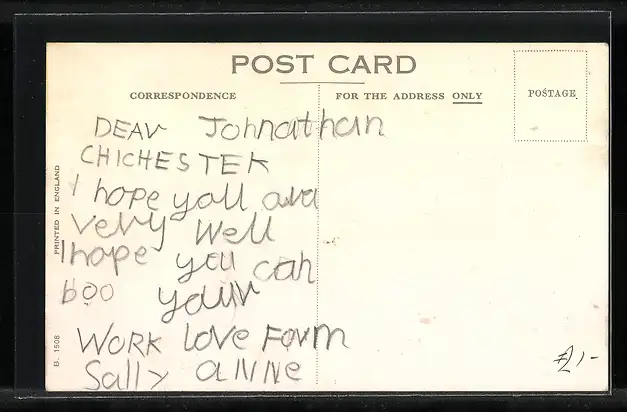 POST CARD
CORRESPONDENCE
FOR THE ADDRESS ONLY
POSTAGE
PRINTED IN ENGLAND
B. 1508
DEAr Johnathan
CHICHESTER
I hope yoll ara
very well
I hope you can
boo your
WORK love Form
Sally anne
£1-